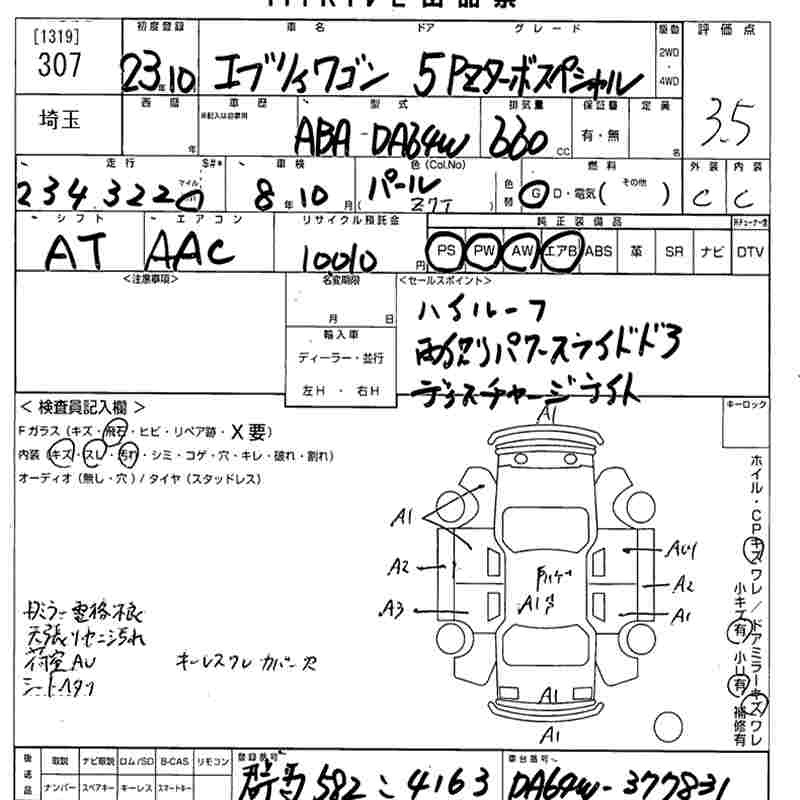 出品票
[1319]
307
埼玉
初度登録 車名 ドア グレード 駆動 評価点
23年10 エブリィワゴン 5 PZターボスペシャル
2WD
・
4WD
3.5
西暦 車歴 型式 排気量 保証書 定員
年 ABA-DA64W 660CC 有・無 名
走行 S#* 車検 色(Col.No) 燃料 外装 内装
234,322 マイル 8年10月 パール 色替 G D・電気( その他 ) C C
シフト エアコン リサイクル預託金 純正装備品
AT AAC 10010円 PS PW AW エアB ABS 革 SR ナビ DTV
<注意事項> 名変期限 <セールスポイント>
月 日
輸入車
ディーラー・並行
左H ・ 右H
ハイルーフ
パワースライドドア
ディスチャージライト
<検査員記入欄> キーロック
Fガラス(キズ・飛石・ヒビ・リペア跡・X要)
内装(キズ・スレ・汚れ・シミ・コゲ・穴・キレ・破れ・割れ)
オーディオ(無し・穴)/タイヤ(スタッドレス)
A1
A1
A2
A3
A1
A2
A1
A1
A1
ホイル・CPキズワレ/ドアミラーキズワレ
小キズ有 小U有 補修有
ミラー電格不良
天張リセニ汚れ
荷室AU キーレスワレ カバー欠
後送品 取説 ナビ取説 ロム/SD B-CAS リモコン
ナンバー スペアキー キーレス スマートキー
登録番号 群馬582 こ 4163
車台番号 DA64W-377831